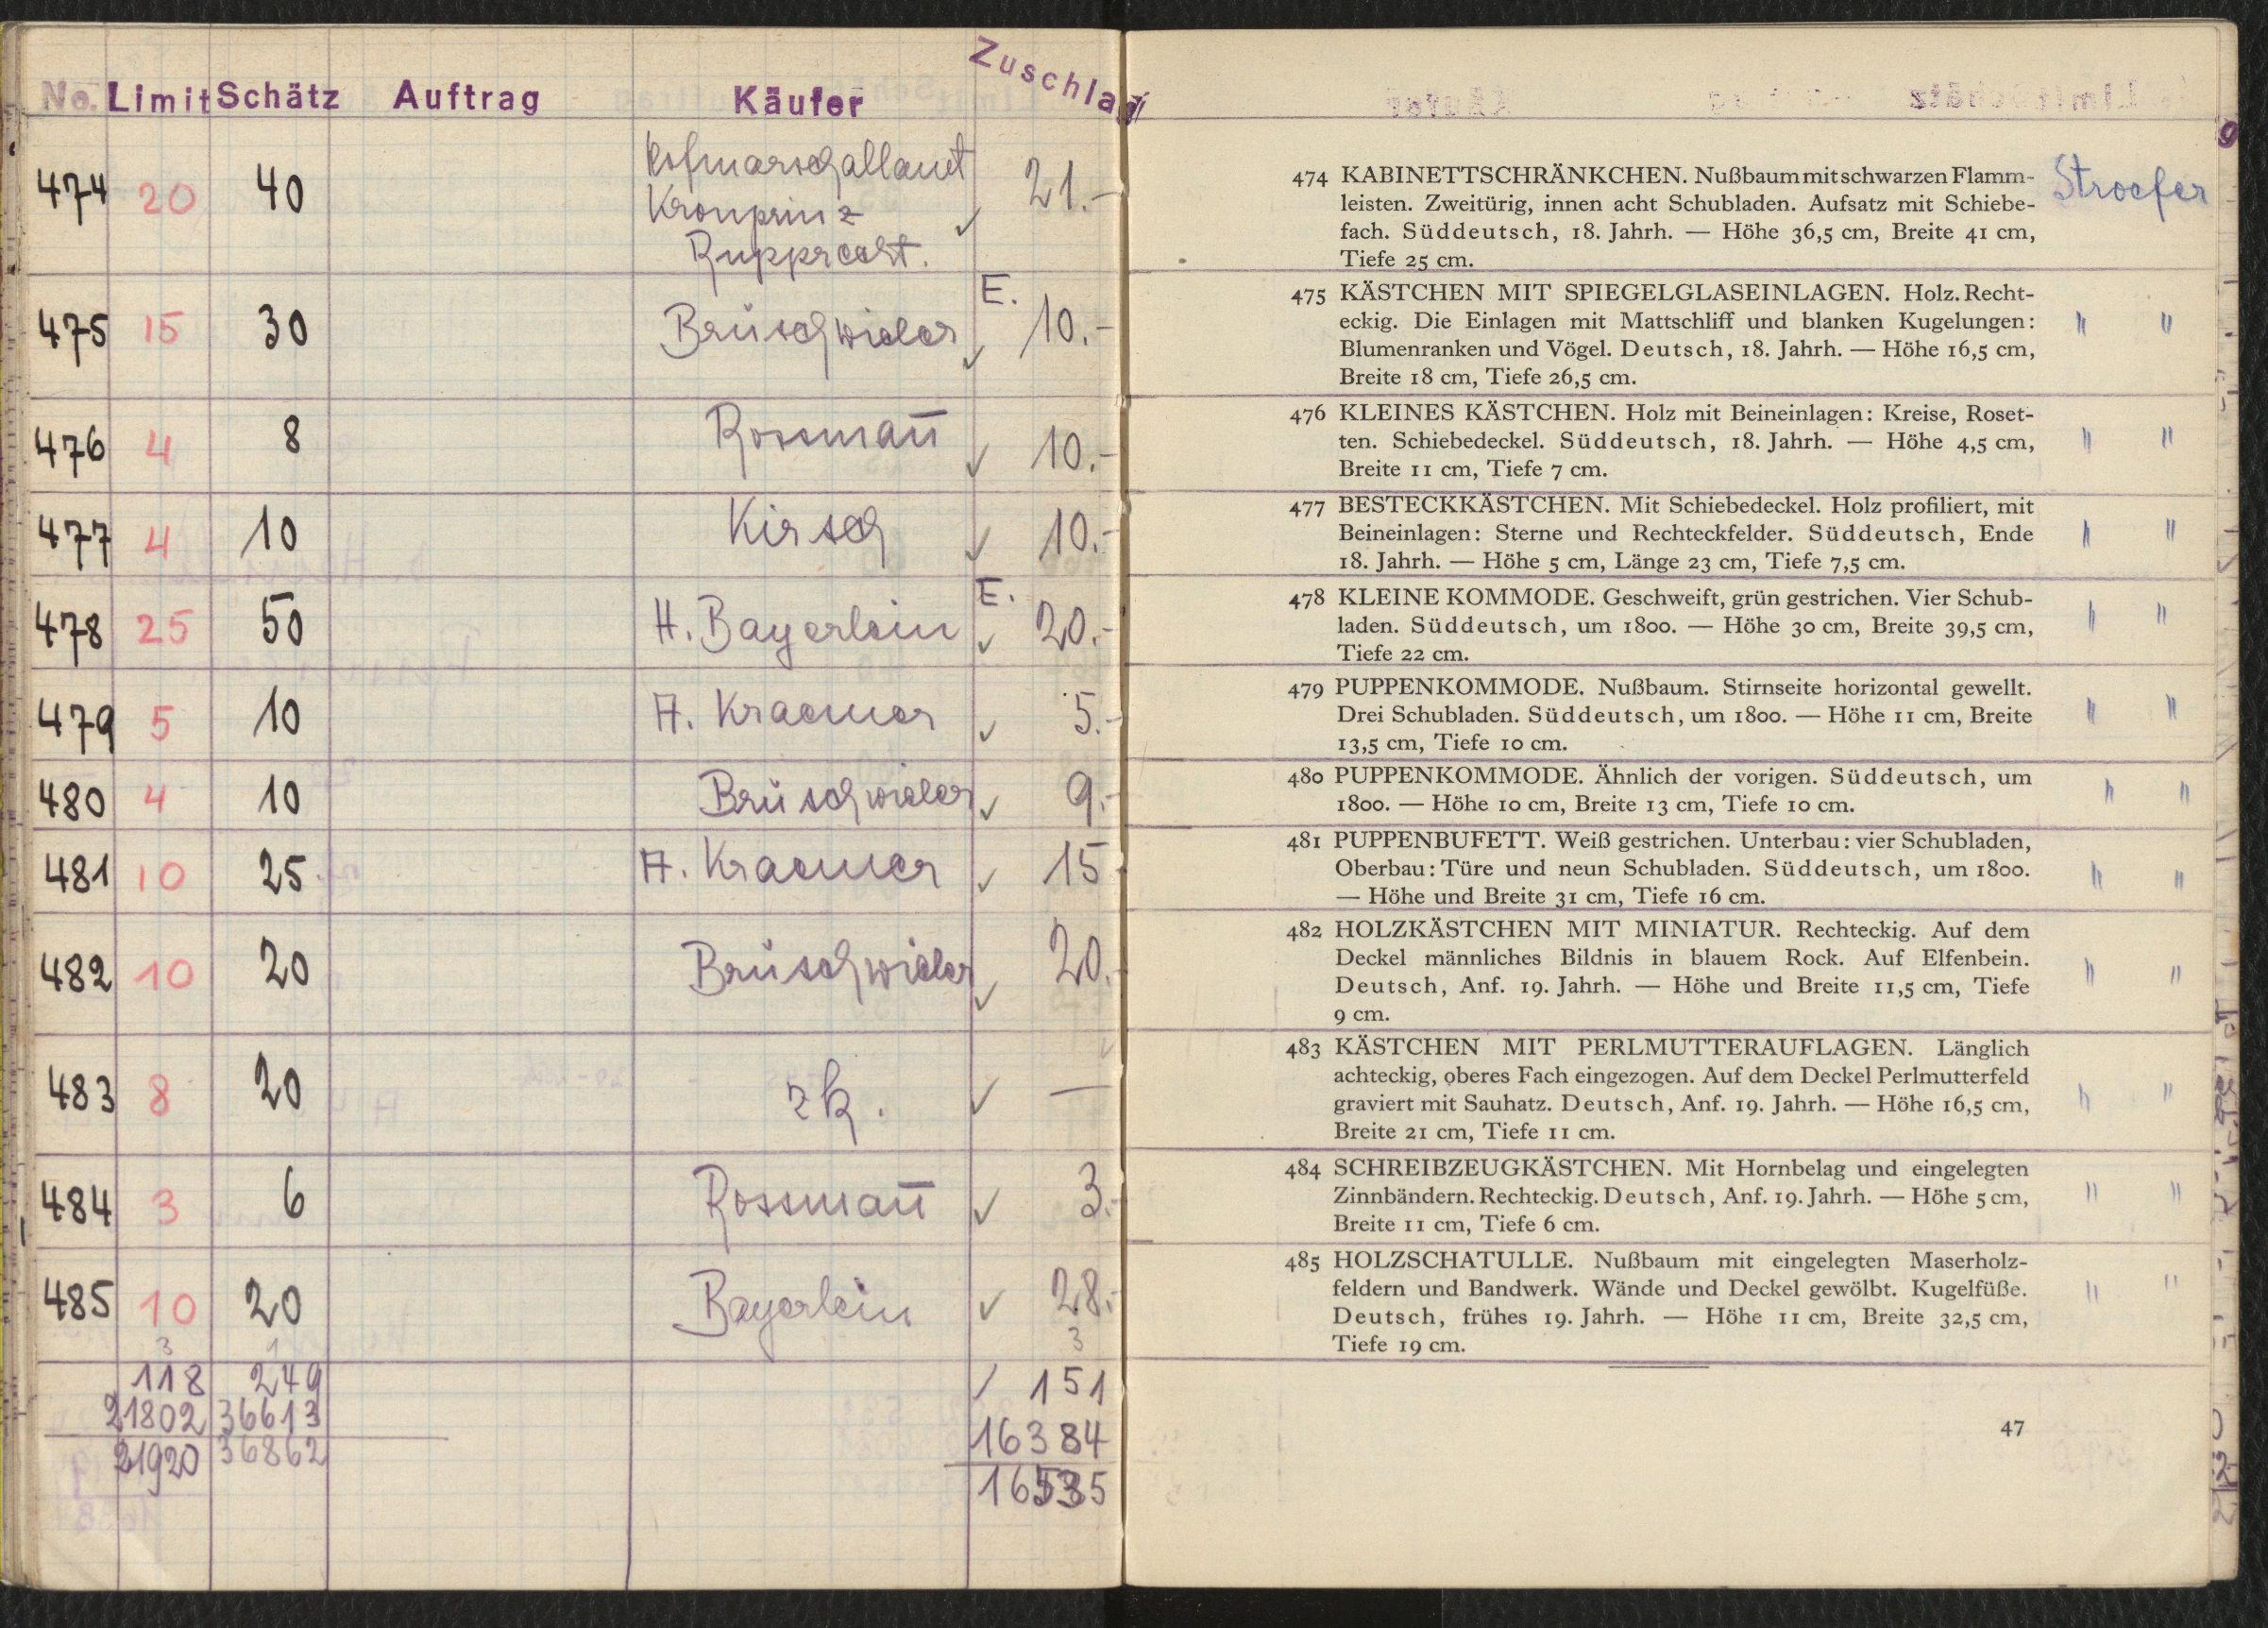 No. Limit Schätz Auftrag Käufer Zuschlag
474 20 40 Hofmarschallamt
Kronprinz
Rupprecht. ✓ 21.-
475 15 30 Brüschwieler E. ✓ 10.-
476 4 8 Rossmañ ✓ 10.-
477 4 10 Kirsch ✓ 10.-
478 25 50 H. Bayerlein E. ✓ 20.-
479 5 10 A. Kraemer ✓ 5.-
480 4 10 Brüschwieler ✓ 9.-
481 10 25 A. Kraemer ✓ 15
482 10 20 Brüschwieler ✓ 20.
483 8 20 zk. ✓ —
484 3 6 Rossmañ ✓ 3.-
485 10 20 Bayerlein ✓ 28.-
3 1 3
118 249 ✓ 151
21802 36613 16384
21920 36862 16535
474 KABINETTSCHRÄNKCHEN. Nußbaum mit schwarzen Flamm-
leisten. Zweitürig, innen acht Schubladen. Aufsatz mit Schiebe-
fach. Süddeutsch, 18. Jahrh. — Höhe 36,5 cm, Breite 41 cm,
Tiefe 25 cm.
Stroefer
475 KÄSTCHEN MIT SPIEGELGLASEINLAGEN. Holz. Recht-
eckig. Die Einlagen mit Mattschliff und blanken Kugelungen: " "
Blumenranken und Vögel. Deutsch, 18. Jahrh. — Höhe 16,5 cm,
Breite 18 cm, Tiefe 26,5 cm.
476 KLEINES KÄSTCHEN. Holz mit Beineinlagen: Kreise, Roset-
ten. Schiebedeckel. Süddeutsch, 18. Jahrh. — Höhe 4,5 cm, " "
Breite 11 cm, Tiefe 7 cm.
477 BESTECKKÄSTCHEN. Mit Schiebedeckel. Holz profiliert, mit
Beineinlagen: Sterne und Rechteckfelder. Süddeutsch, Ende " "
18. Jahrh. — Höhe 5 cm, Länge 23 cm, Tiefe 7,5 cm.
478 KLEINE KOMMODE. Geschweift, grün gestrichen. Vier Schub-
laden. Süddeutsch, um 1800. — Höhe 30 cm, Breite 39,5 cm, " "
Tiefe 22 cm.
479 PUPPENKOMMODE. Nußbaum. Stirnseite horizontal gewellt.
Drei Schubladen. Süddeutsch, um 1800. — Höhe 11 cm, Breite " "
13,5 cm, Tiefe 10 cm.
480 PUPPENKOMMODE. Ähnlich der vorigen. Süddeutsch, um
1800. — Höhe 10 cm, Breite 13 cm, Tiefe 10 cm. " "
481 PUPPENBUFETT. Weiß gestrichen. Unterbau: vier Schubladen,
Oberbau: Türe und neun Schubladen. Süddeutsch, um 1800. " "
— Höhe und Breite 31 cm, Tiefe 16 cm.
482 HOLZKÄSTCHEN MIT MINIATUR. Rechteckig. Auf dem
Deckel männliches Bildnis in blauem Rock. Auf Elfenbein. " "
Deutsch, Anf. 19. Jahrh. — Höhe und Breite 11,5 cm, Tiefe
9 cm.
483 KÄSTCHEN MIT PERLMUTTERAUFLAGEN. Länglich
achteckig, oberes Fach eingezogen. Auf dem Deckel Perlmutterfeld
graviert mit Sauhatz. Deutsch, Anf. 19. Jahrh. — Höhe 16,5 cm, " "
Breite 21 cm, Tiefe 11 cm.
484 SCHREIBZEUGKÄSTCHEN. Mit Hornbelag und eingelegten
Zinnbändern. Rechteckig. Deutsch, Anf. 19. Jahrh. — Höhe 5 cm, " "
Breite 11 cm, Tiefe 6 cm.
485 HOLZSCHATULLE. Nußbaum mit eingelegten Maserholz-
feldern und Bandwerk. Wände und Deckel gewölbt. Kugelfüße. " "
Deutsch, frühes 19. Jahrh. — Höhe 11 cm, Breite 32,5 cm,
Tiefe 19 cm.
47